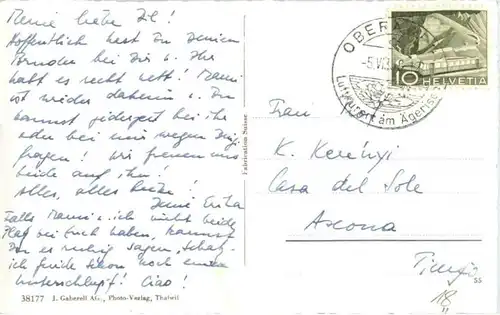 Meine liebe Il!
Hoffentlich hast Du Deinen
Bruder bei Dir u. Ihr
habt es recht nett! Mami
ist wieder daheim u. Du
kannst jederzeit bei ihr
oder bei mir wegen
fragen! Wir freuen uns
beide auf ihn!
Alles, alles Liebe!
Deine Erika
Falls Mami u. ich nicht beide
Platz bei Euch haben, kannst
Du es ruhig sagen,
ich finde schon noch einen
Unterschlupf! Ciao!
38177 J. Gaberell AG., Photo-Verlag, Thalwil
Fabrication Suisse
OBER
-5.VII
Luftkurort am Ägerisee
10 HELVETIA
Frau
K. Kerényi
Casa del Sole
Ascona
Tessin
ss
18